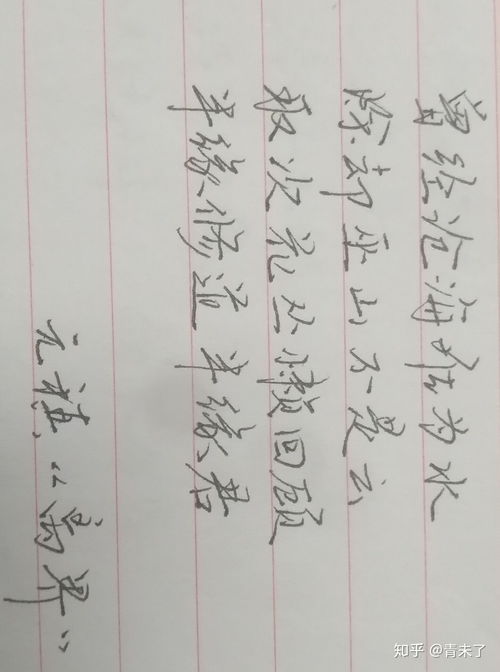 曾经沧海难为水
除却巫山不是云
取次花丛懒回顾
半缘修道半缘君
元稹“离思”
知乎 @青未了